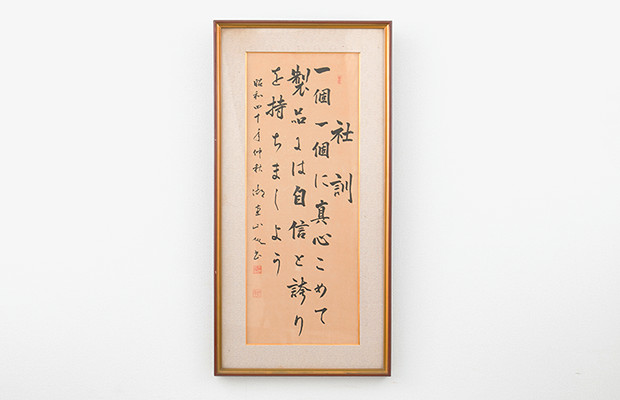 社訓
一個一個に真心こめて
製品には自信と誇り
を持ちましょう
昭和四十年仲秋